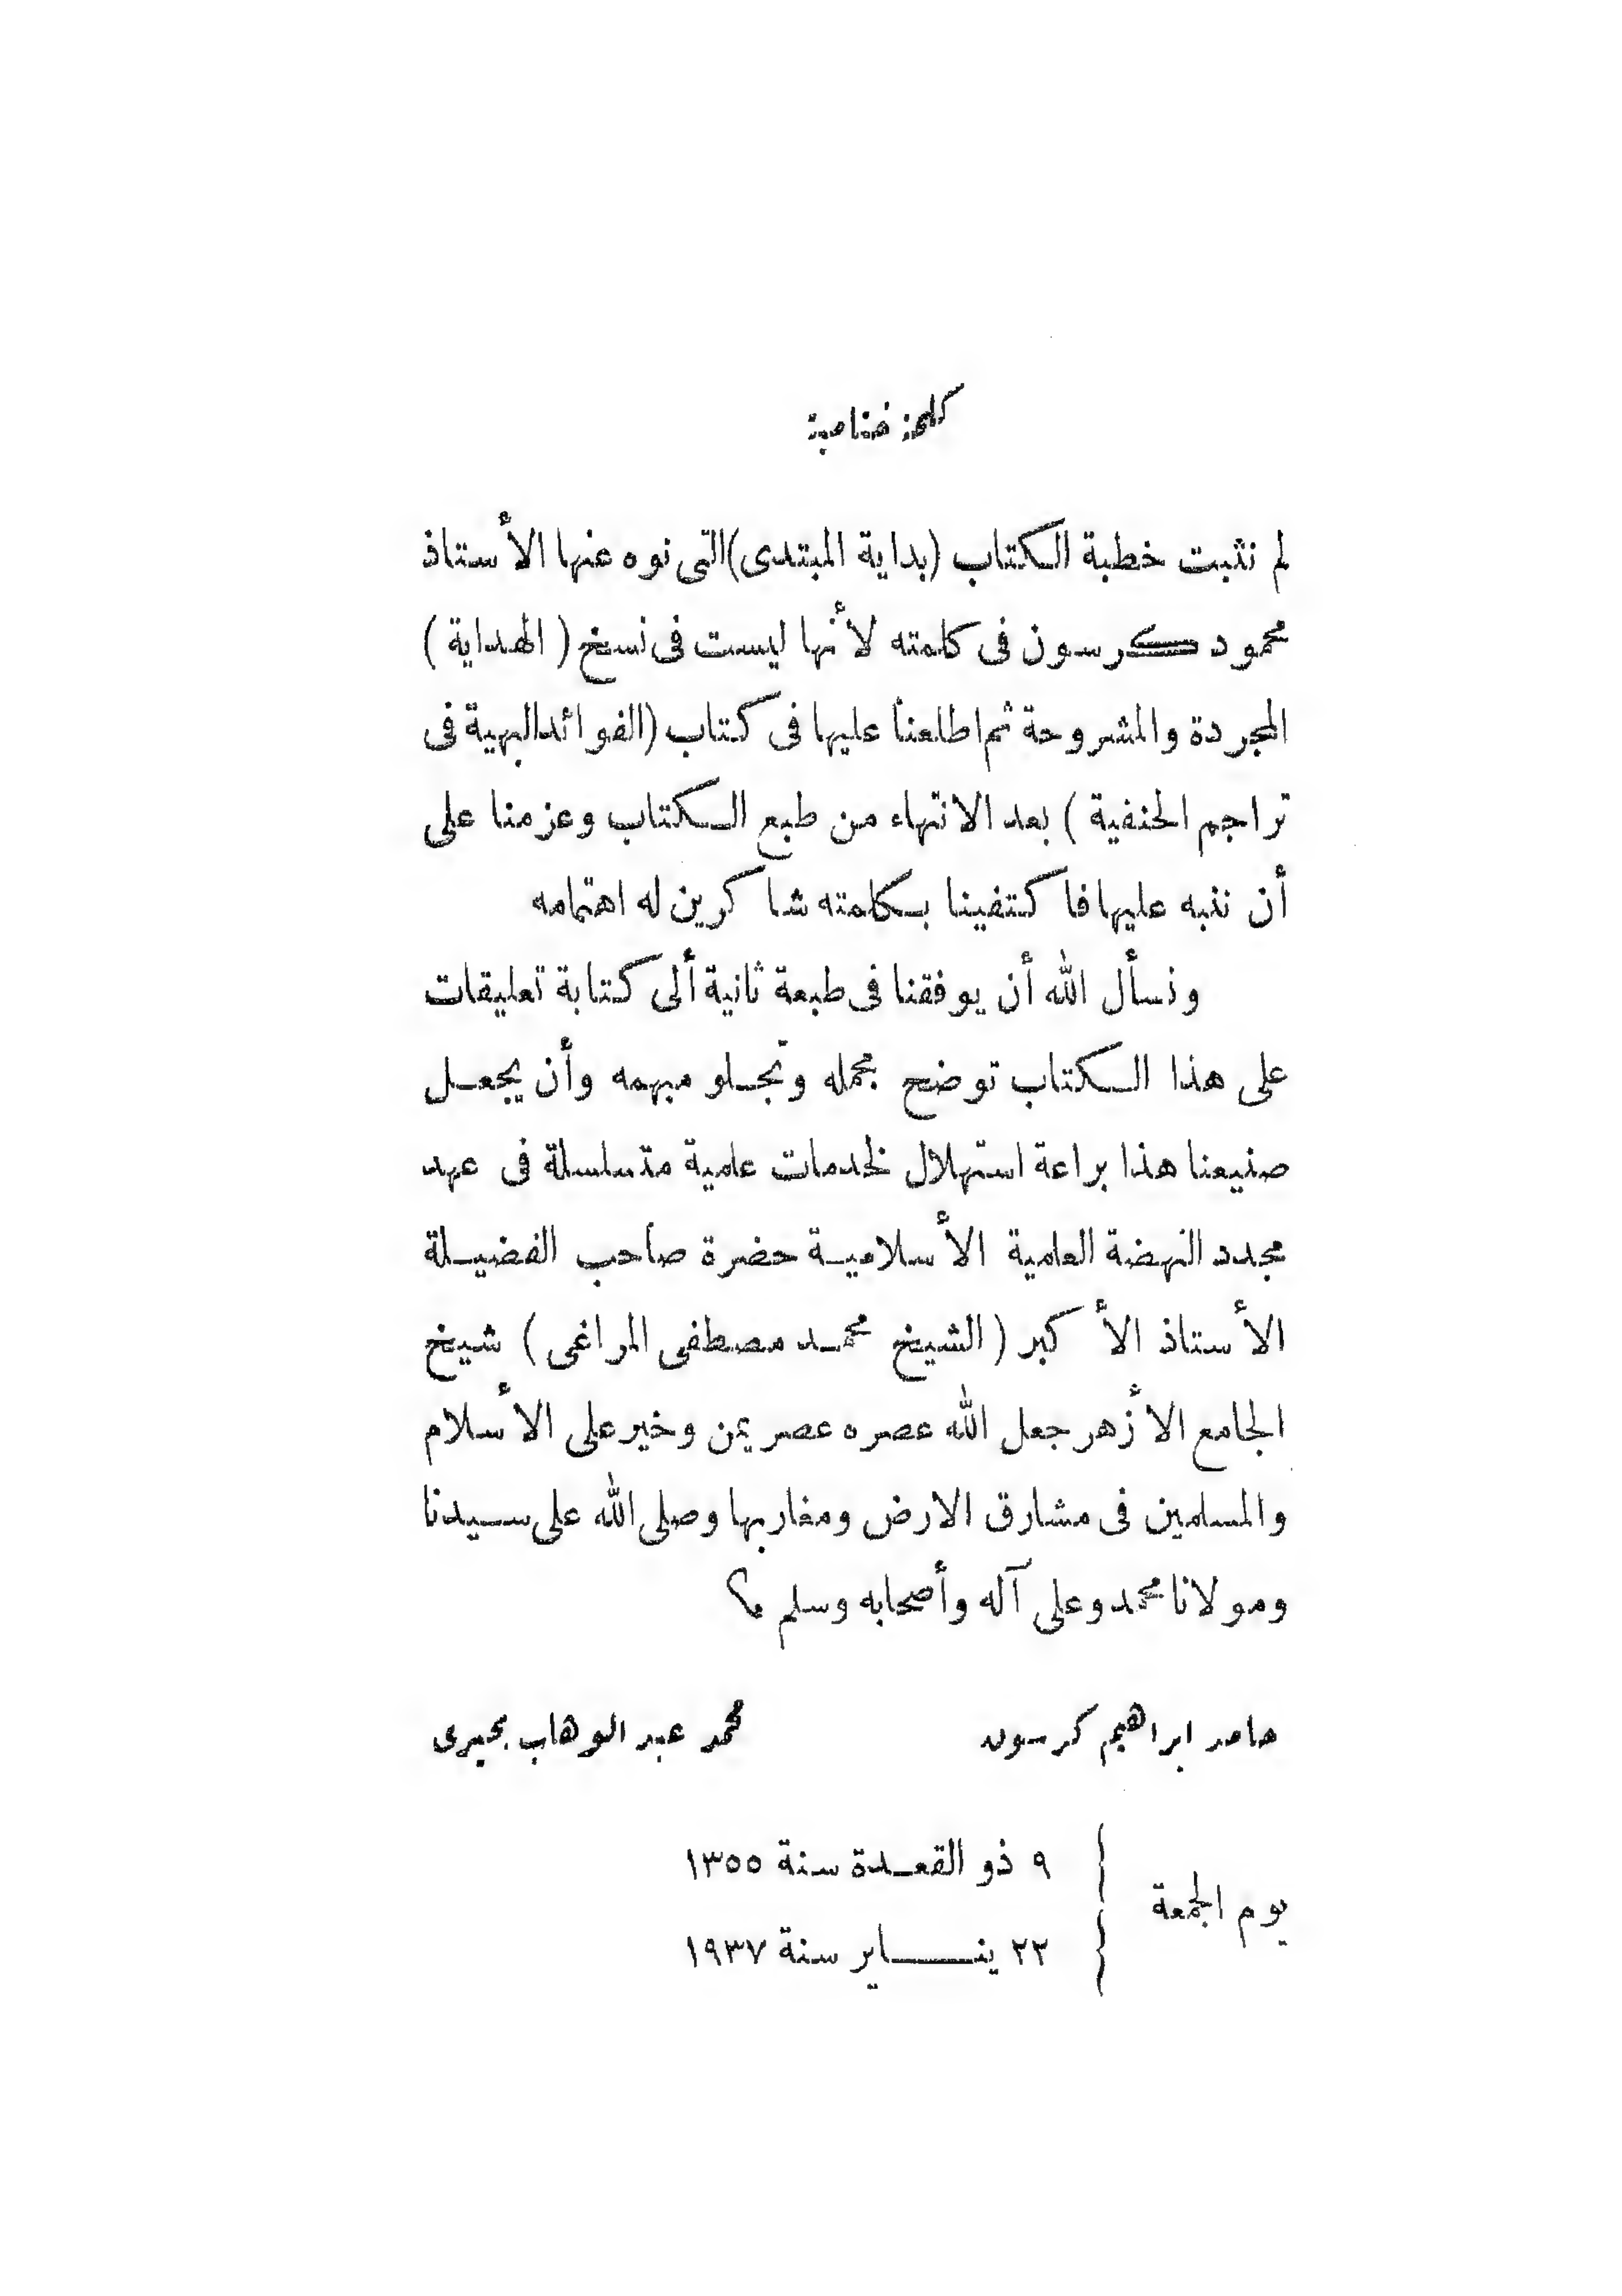 كلمة ختامية
لم نثبت خطبة الكتاب (بداية المبتدى) التى نوه عنها الأستاذ
محمود كرسون فى كلمته لأنها ليست فى نسخ ( الهداية )
المجردة والمشروحة ثم اطلعنا عليها فى كتاب (الفوائد البهية فى
تراجم الحنفية ) بعد الانتهاء من طبع الكتاب وعزمنا على
أن ننبه عليها فاكتفينا بكلمته شاكرين له اهتمامه
ونسأل الله أن يوفقنا فى طبعة ثانية ألى كتابة تعليقات
على هذا الكتاب توضح مجمله وتجلو مبهمه وأن يجعل
صنيعنا هذا براعة استهلال لخدمات علمية متسلسلة فى عهد
مجدد النهضة العلمية الأسلامية حضرة صاحب الفضيلة
الأستاذ الأكبر ( الشيخ محمد مصطفى المراغى ) شيخ
الجامع الأزهر جعل الله عصره عصر يمن وخير على الأسلام
والمسلمين فى مشارق الارض ومغاربها وصلى الله على سيدنا
ومولانا محمد وعلى آله وأصحابه وسلم ؟
حامد ابراهيم كرسون محمد عبد الوهاب بحيرى
يوم الجمعة
٩ ذو القعدة سنة ١٣٥٥
٢٢ ينــاير سنة ١٩٣٧